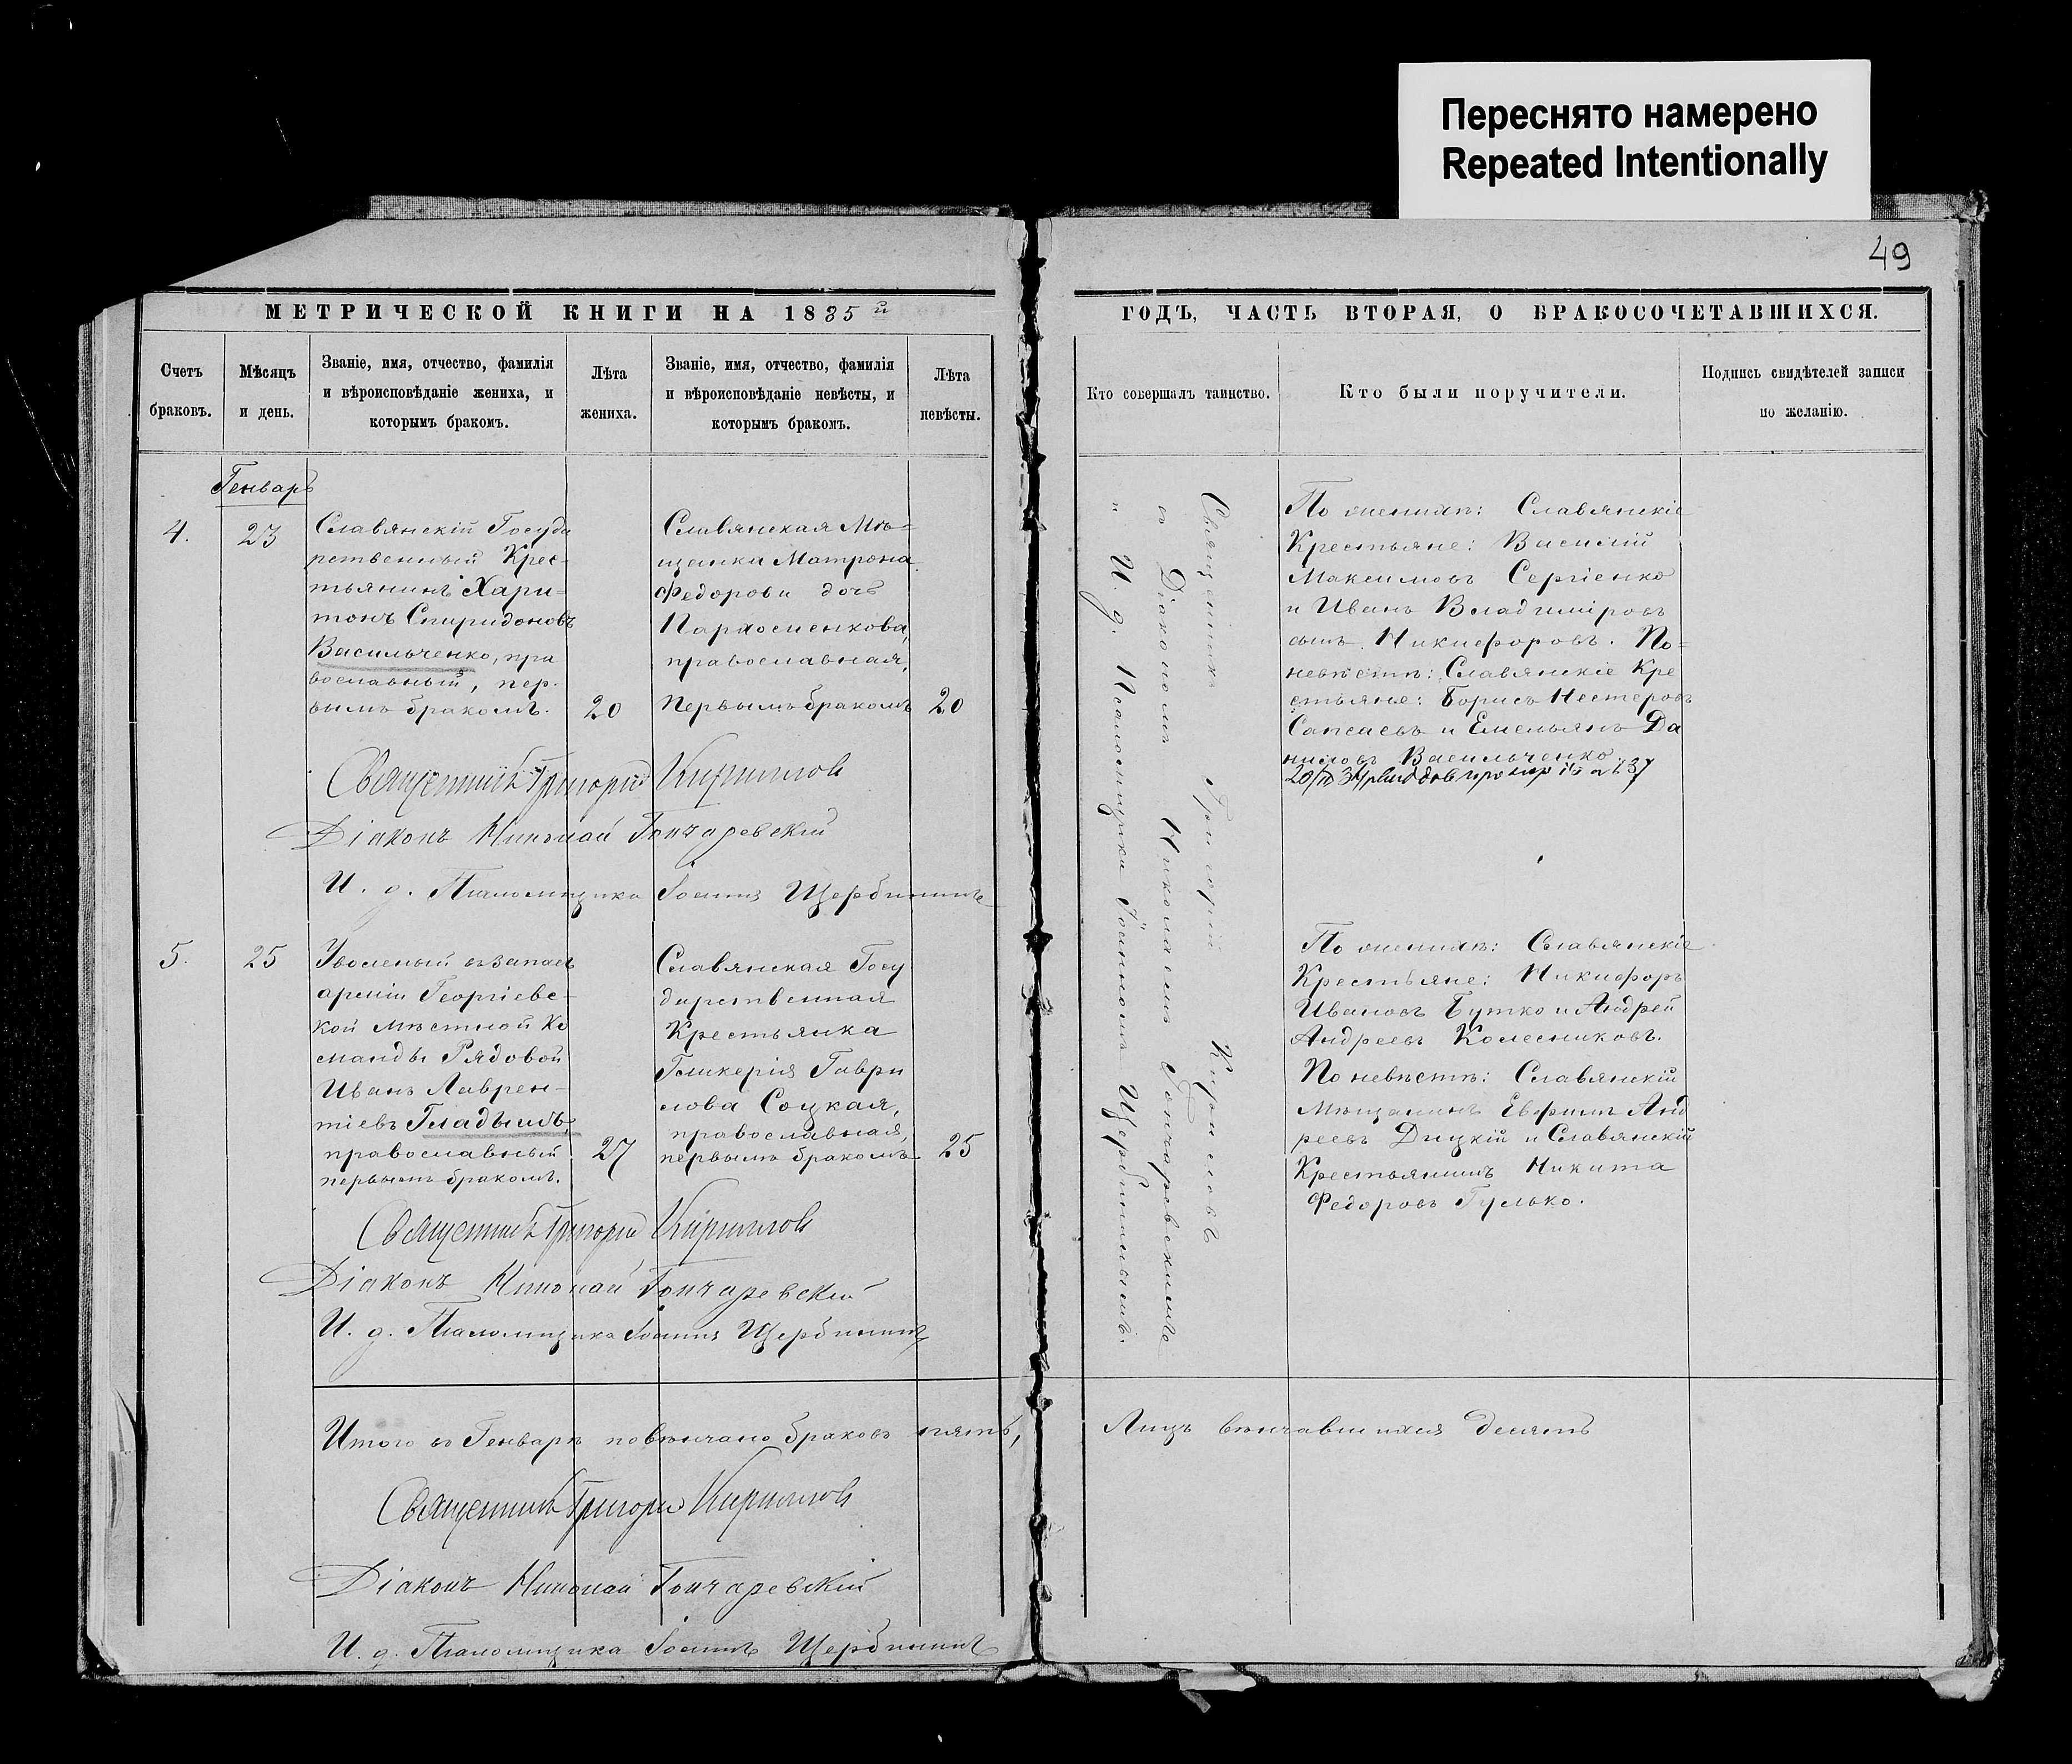 Переснято намерено
Repeated Intentionally
49
МЕТРИЧЕСКОЙ КНИГИ НА 1885й
ГОДЪ, ЧАСТЬ ВТОРАЯ, О БРАКОСОЧЕТАВШИХСЯ.
Счетъ
браковъ.
Мѣсяцъ
и день.
Званіе, имя, отчество, фамилія
и вѣроисповѣданіе жениха, и
которымъ бракомъ.
Лѣта
жениха.
Званіе, имя, отчество, фамилія
и вѣроисповѣданіе невѣсты, и
которымъ бракомъ.
Лѣта
невѣсты.
Кто совершалъ таинство.
Кто были поручители.
Подпись свидѣтелей записи
по желанію.
Генварь
4.
23
Славянскій Госуда
рственный Крес-
тьянинъ Хари-
тонъ Спиридоновъ
Васильченко, пра
вославный, пер-
вымъ бракомъ.
20
Славянская Мѣ-
щанка Матрона
Федорова дочь
Пархоменкова,
православная,
первымъ бракомъ
20
Священникъ Григорій Кирилловъ
Діаконъ Николай Гончаревскій
И. д. Псаломщика Іоаннъ Щербининъ
5.
25
Уволеный въ запасъ
арміи Георгіевс-
кой мѣстной Ко
манды Рядовой
Иванъ Лаврен-
тіевъ Гладышъ,
православный
первымъ бракомъ.
27
Славянская Госу
дарственная
Крестьянка
Гликерія Гаври
лова Соцкая,
православная,
первымъ бракомъ
25
Священникъ Григорій Кирилловъ
Діаконъ Николай Гончаревскій
И. д. Псаломщика Іоаннъ Щербининъ
Итого въ Генварѣ повѣнчано браковъ пять,
Священникъ Григорій Кирилловъ
Діаконъ Николай Гончаревскій
И. д. Псаломщика Іоаннъ Щербининъ
Священникъ Григорій Кирилловъ
съ Діакономъ Николаемъ Гончаревскимъ
и И. д. Псаломщика Іоанномъ Щербининымъ.
По женихѣ: Славянскіе
Крестьяне: Василій
Максимовъ Сергіенко
и Иванъ Владиміровъ
сынъ Никифоровъ. По-
невѣстѣ: Славянскіе Кре
стьяне: Борисъ Нестеровъ
и Емельянъ Да
ниловъ Васильченко
По женихѣ: Славянскіе
Крестьяне: Никифоръ
Ивановъ Бутко и Андрей
Андреевъ Колесниковъ.
По невѣстѣ: Славянскій
Мѣщанинъ Евфимъ Анд
реевъ Дицкій и Славянскій
Крестьянинъ Никита
Федоровъ Гулько.
Лицъ вѣнчавшихся десять